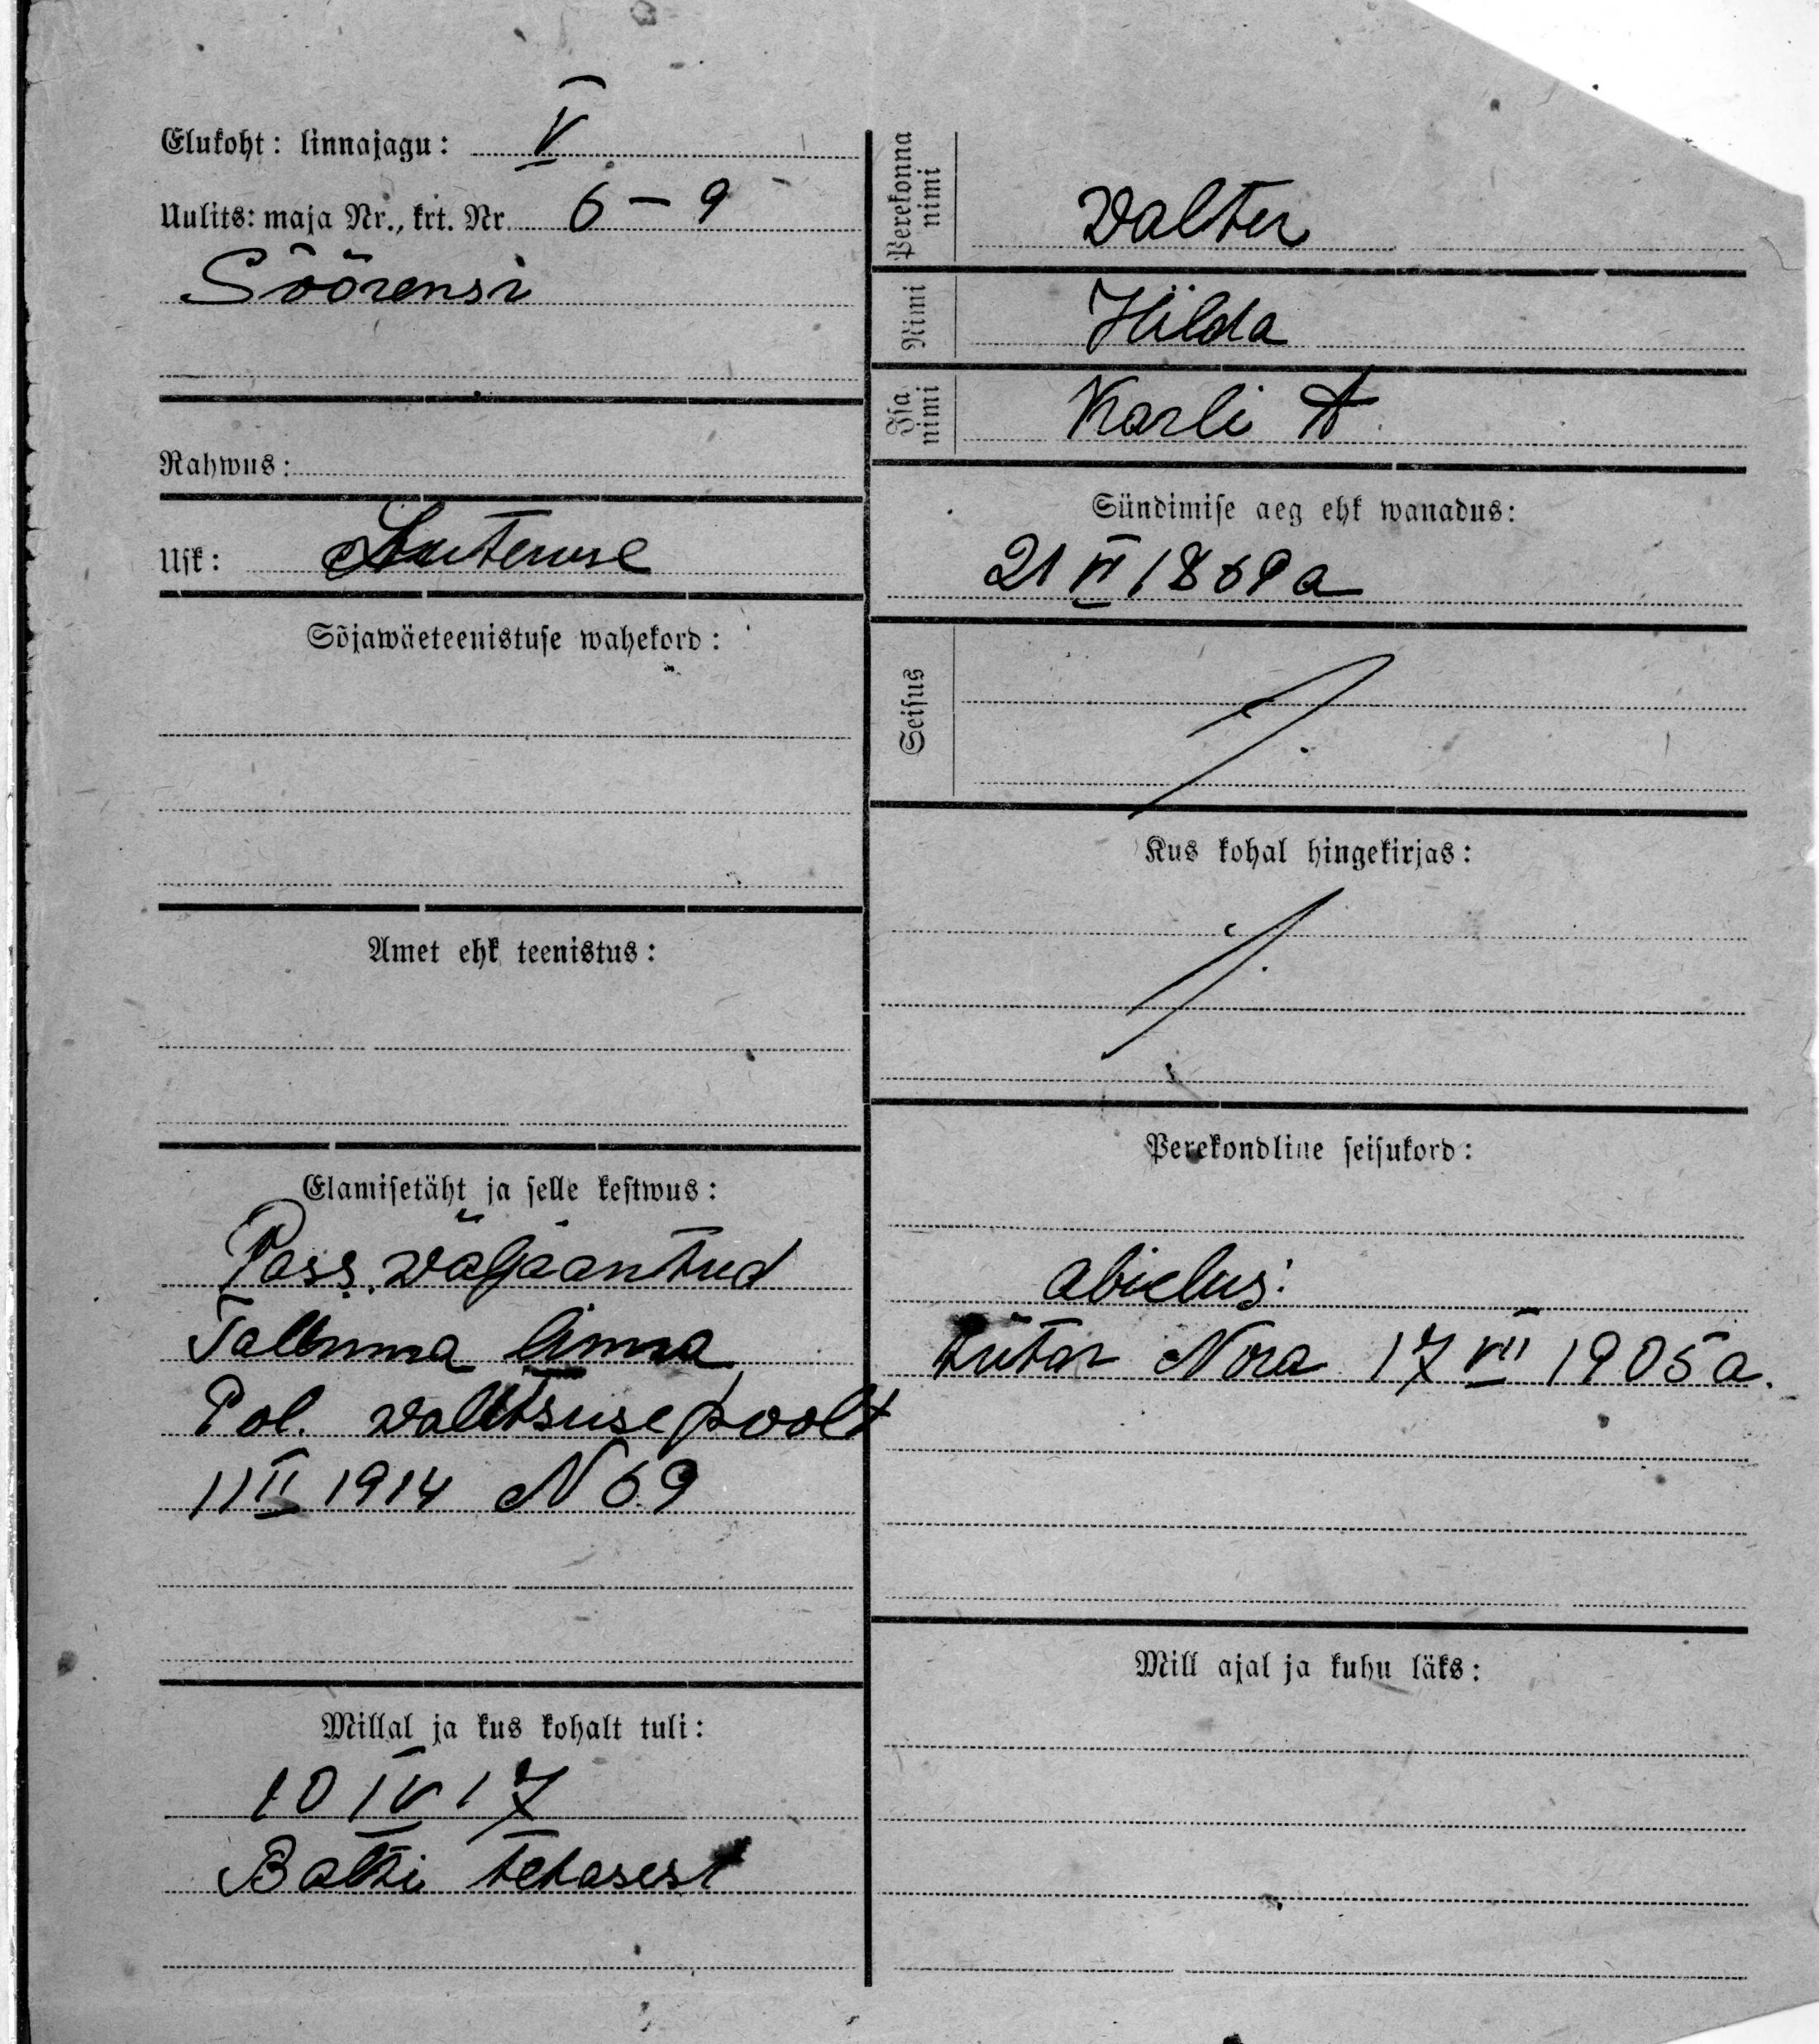 Elukoht: linnajagu: V
Uulits: maja Nr., krt. Nr. 6 – 9
Söörensi
Rahwus:
Usk: Luteruse
Sõjawäeteenistuse wahekord:
Amet ehk teenistus:
Elamisetäht ja selle kestwus:
Pass wäljaantud
Tallinna linna
Pol. walitsuse poolt
11 II 1914 N 69
Millal ja kus kohalt tuli:
10 IV 17
Balti tehasest
Perekonna nimi
Walter
Nimi
Hilda
Isa nimi
Karli t.
Sündimise aeg ehk wanadus:
21 VI 1869 a
Seisus
Kus kohal hingekirjas:
Perekondline seisukord:
abielus:
tütar Nora 17 VII 1905 a.
Mill ajal ja kuhu läks: